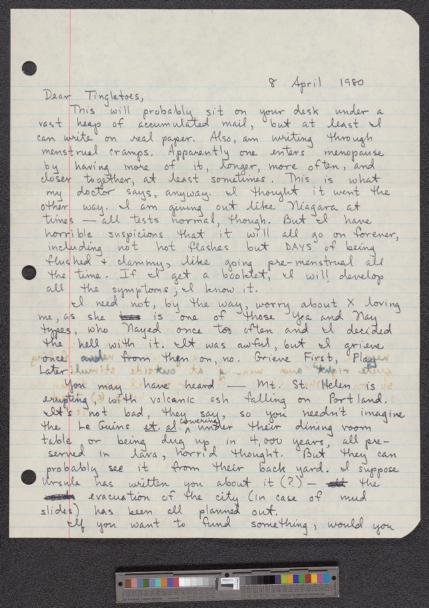 8 April 1980
Dear Tingletoes,
This will probably sit on your desk under a
vast heap of accumulated mail, but at least I
can write on real paper. Also, am writing through
menstrual cramps. Apparently one enters menopause
by having more of it, longer, more often, and
closer together, at least sometimes. This is what
my doctor says, anyway. I thought it went the
other way. I am giving out like Niagara at
times — all tests normal, though. But I have
horrible suspicions that it will all go on forever,
including not hot flashes but DAYS of being
flushed & clammy, like going pre-menstrual all
the time. If I get a booklet, I will develop
all the symptoms; I know it.
I need not, by the way, worry about X loving
me, as she is one of those Yea and Nay
types, who Nayed once too often and I decided
the hell with it. It was awful, but I grieve
once and from then on, no. Grieve First, Play
Later.
You may have heard — Mt. St. Helen is
erupting, with volcanic ash falling on Portland.
It's not bad, they say, so you needn't imagine
the Le Guins et. al cowering under their dining room
table or being dug up, in 4,000 years, all pre-
served in lava, horrid thought. But they can
probably see it from their back yard. I suppose
Ursula has written you about it (?) — the
evacuation of the city (in case of mud
slides) has been all planned out.
If you want to fund something, would you